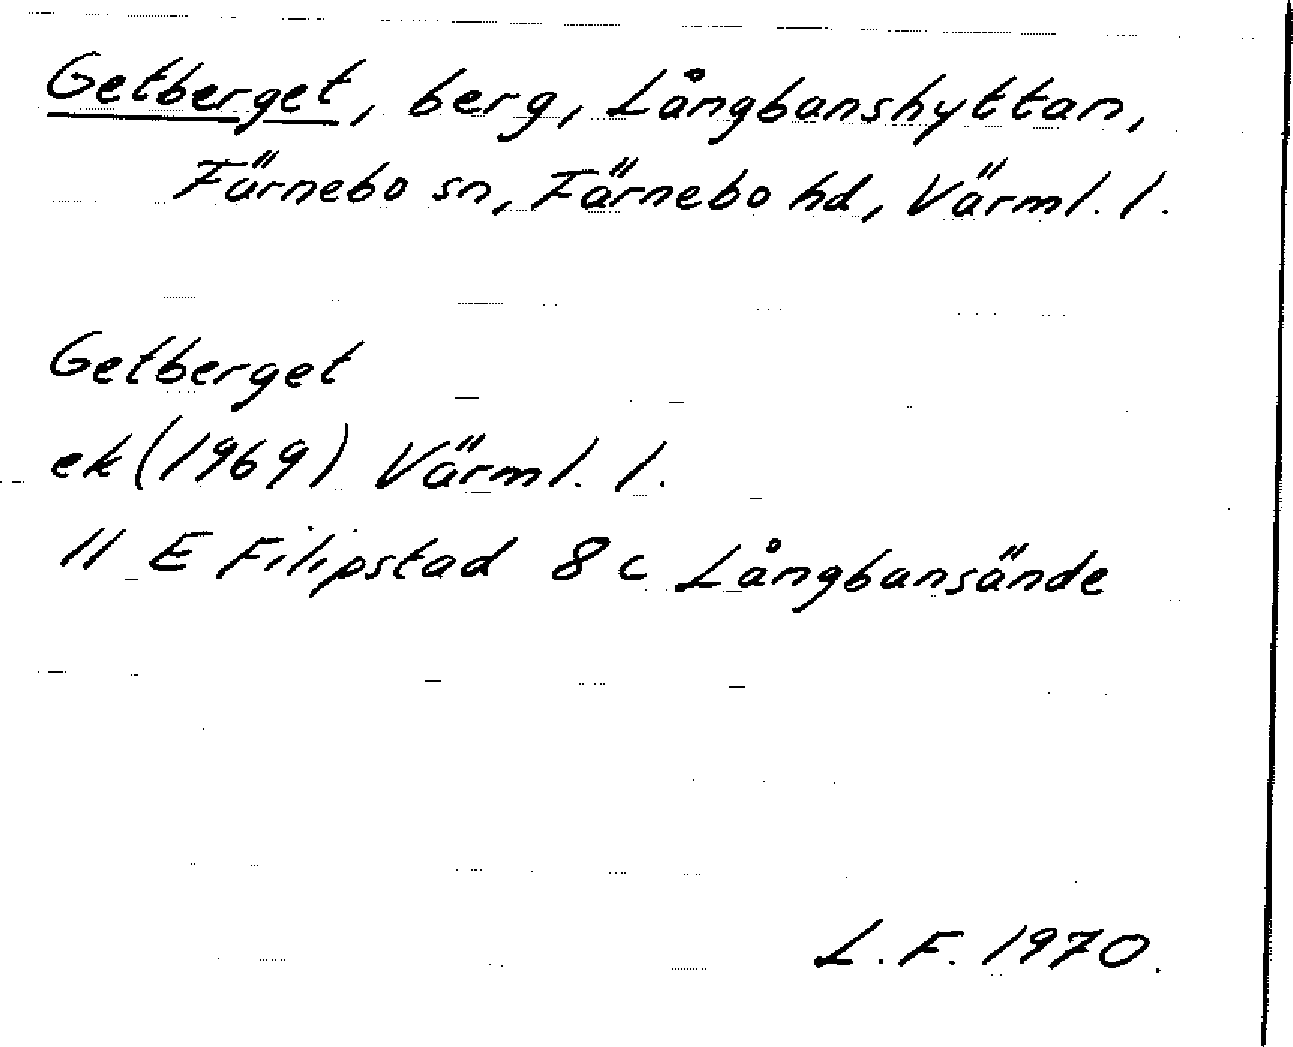 Getberget, berg, Långbanshyttan,
Färnebo sn, Färnebo hd, Värml. l.
Getberget
ek (1969) Värml. l.
11 E Filipstad 8 c Långbansände
L. F. 1970.